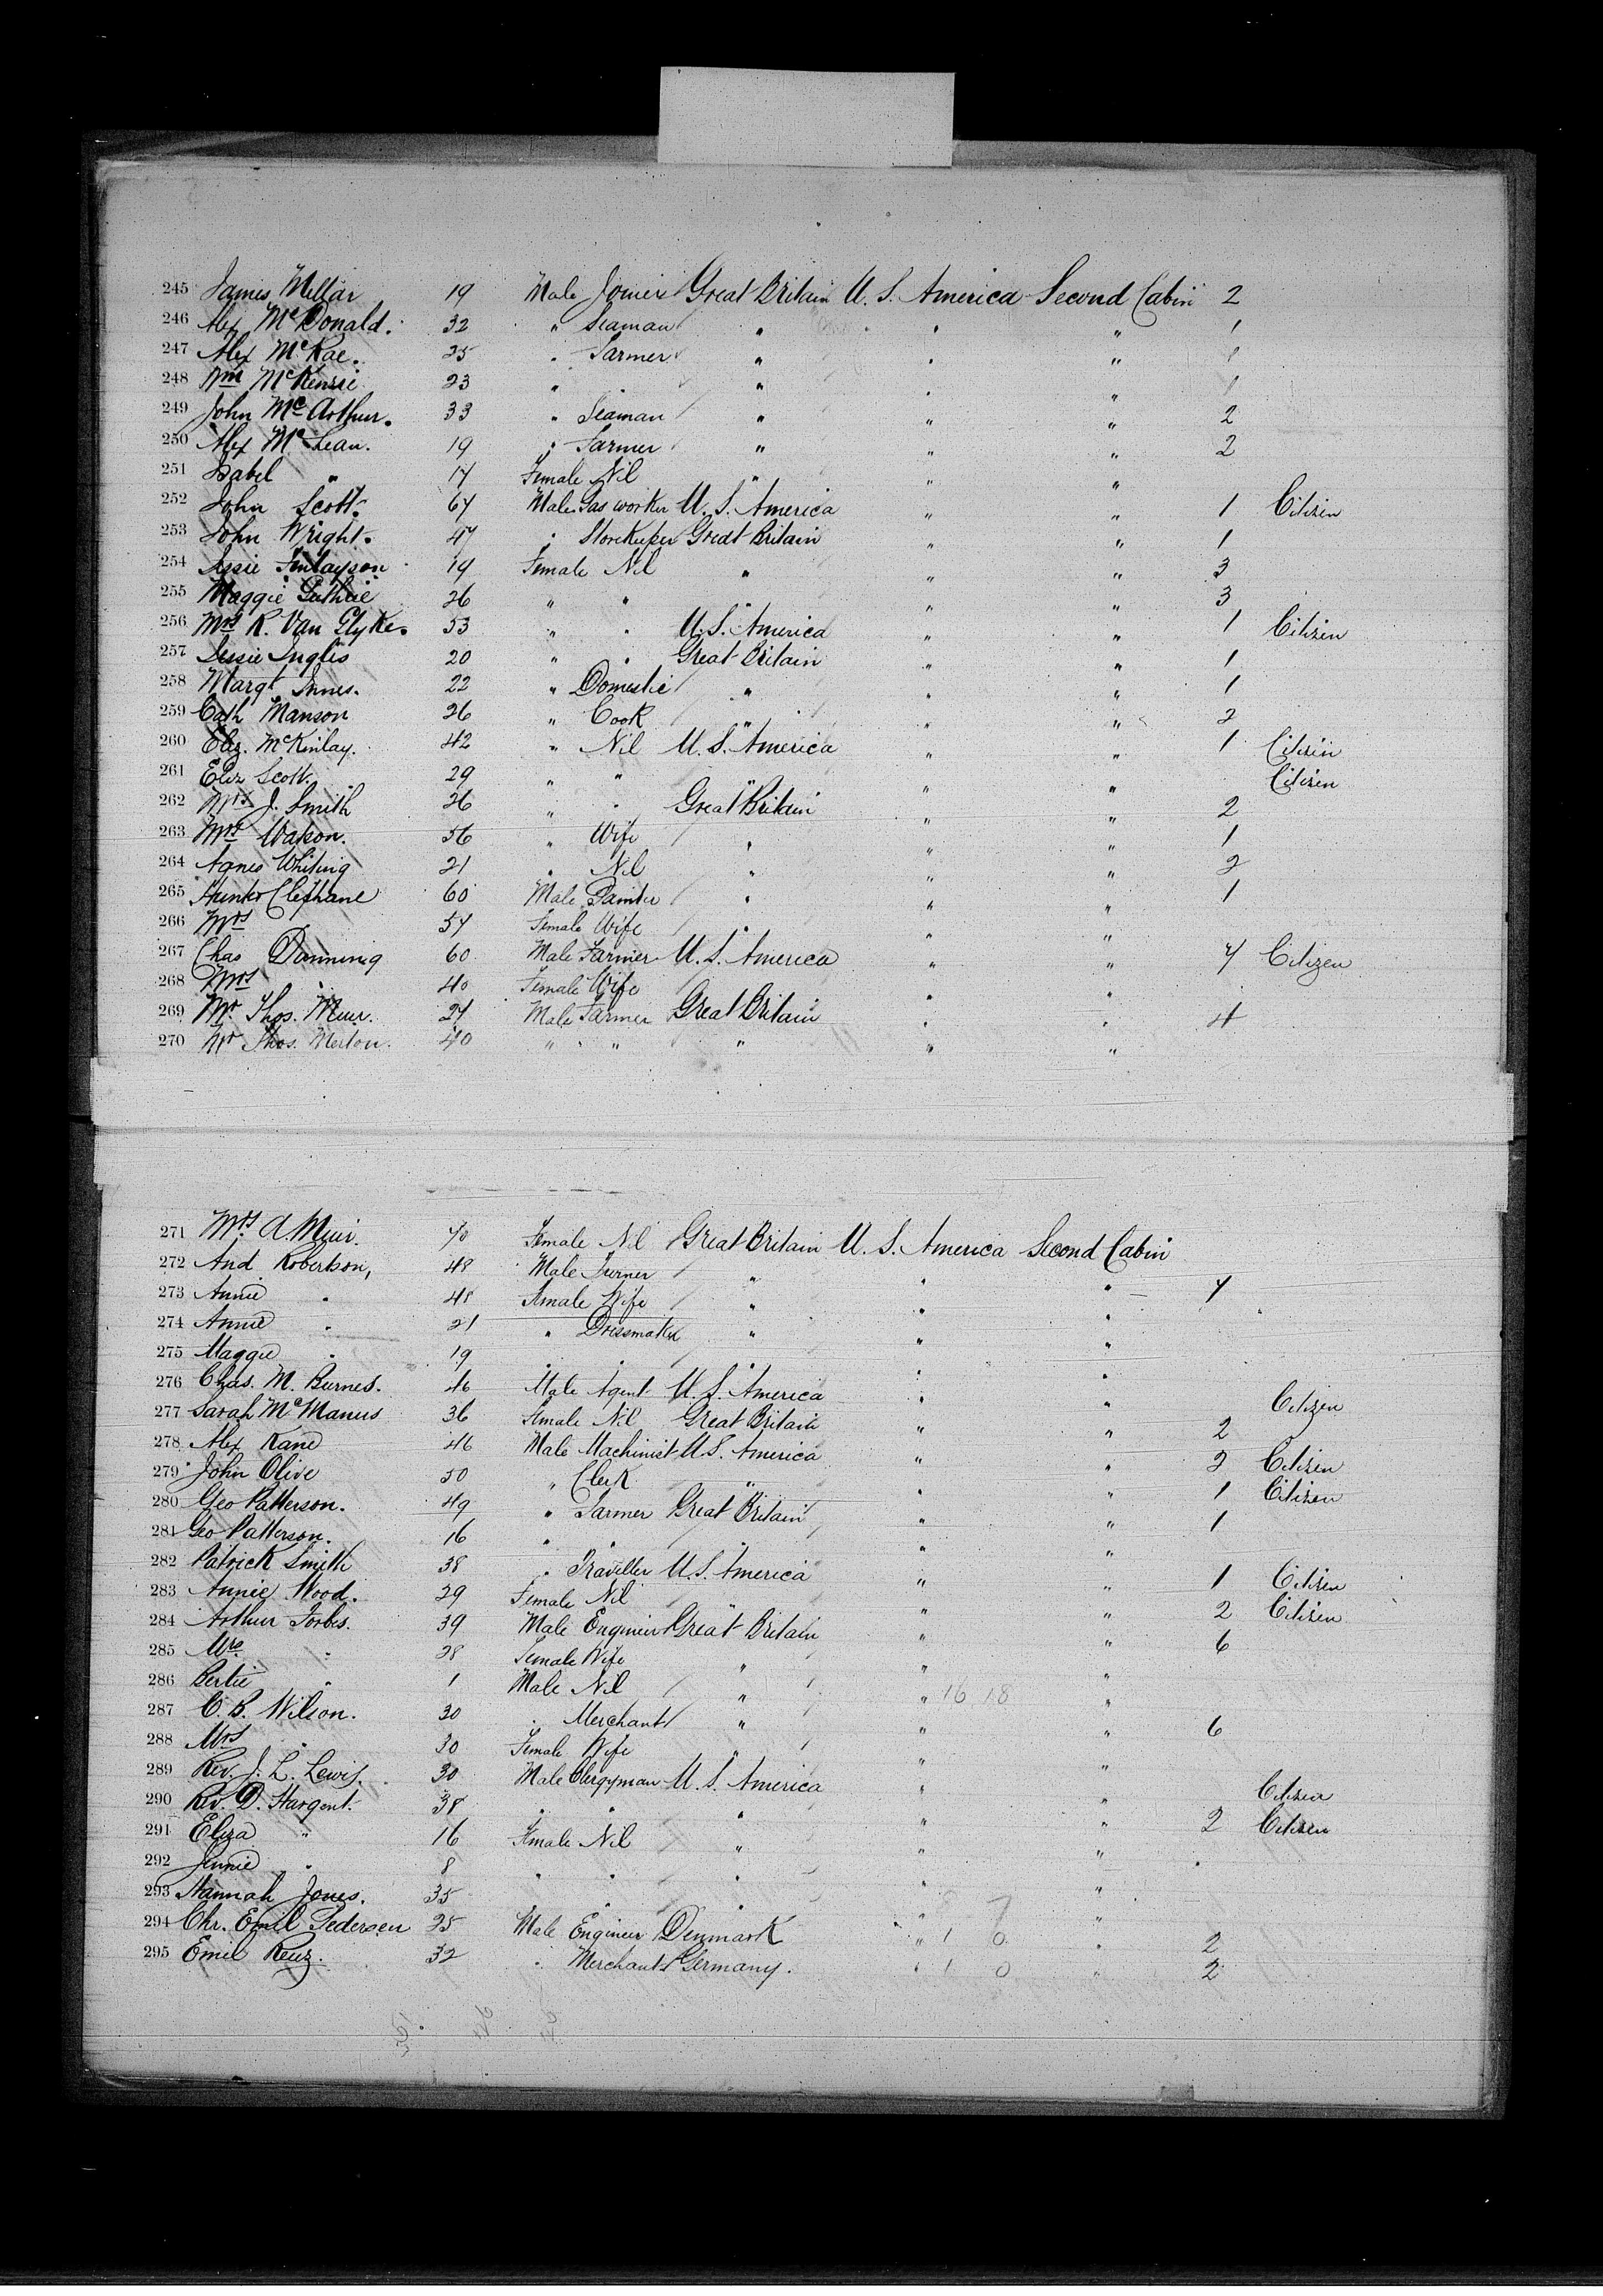 245 James Millar 19 Male Joiner Great Britain U. S. America Second Cabin 2
246 Alex McDonald. 32 " Seaman " " " 1
247 Alex McRae. 25 " Farmer " " " 1
248 Wm McKenzie 23 " " " " " 1
249 John McArthur. 33 " Seaman " " " 2
250 Alex McLean. 19 " Farmer " " " 2
251 Isabel " 17 Female Nil " " "
252 John Scott. 64 Male Gas worker U. S. America " " 1 Citizen
253 John Wright. 47 " Storekeeper Great Britain " " 1
254 Jessie Finlayson 19 Female Nil " " " 3
255 Maggie Guthrie 26 " " " " " 3
256 Mrs R. Van Slyke. 53 " " U. S. America " " 1 Citizen
257 Jessie Inglis 20 " " Great Britain " " 1
258 Margt Innes. 22 " Domestic " " " 1
259 Cath Manson 26 " Cook " " " 2
260 Eliz. McKinlay. 42 " Nil U. S. America " " 1 Citizen
261 Eliz Scott. 29 " " " " " Citizen
262 Mrs J. Smith 26 " " Great Britain " " 2
263 Mrs Watson. 56 " Wife " " " 1
264 Agnes Whiting 21 " Nil " " " 2
265 Hunter Clephane 60 Male Painter " " " 1
266 Mrs " 57 Female Wife " " "
267 Chas Danning 60 Male Farmer U. S. America " " 7 Citizen
268 Mrs " 40 Female Wife " " "
269 Mr Thos. Muir. 27 Male Farmer Great Britain " " 4
270 Mr Thos. Merton. 40 " " " " "
271 Mrs A. Muir. 70 Female Nil Great Britain U. S. America Second Cabin
272 And Robertson, 48 Male Turner " " " 7
273 Annie " 48 Female Wife " " "
274 Annie " 21 " Dressmaker " " "
275 Maggie " 19 " " " " "
276 Chas. M. Burnes. 46 Male Agent U. S. America " " Citizen
277 Sarah McManus 36 Female Nil Great Britain " " 2
278 Alex Kane 46 Male Machinist U. S. America " " 2 Citizen
279 John Olive 50 " Clerk " " " 1 Citizen
280 Geo Patterson. 49 " Farmer Great Britain " " 1
281 Geo Patterson. 16 " " " " "
282 Patrick Smith 38 " Traveller U. S. America " " 1 Citizen
283 Annie Wood. 29 Female Nil " " " 2 Citizen
284 Arthur Forbes. 39 Male Engineer Great Britain " " 6
285 Mrs " 28 Female Wife " " "
286 Bertie " 1 Male Nil " " 16 18 "
287 C. B. Wilson. 30 " Merchant " " " 6
288 Mrs " 30 Female Wife " " "
289 Rev. J. L. Lewis. 30 Male Clergyman U. S. America " " Citizen
290 Rev. D. Hargent. 38 " " " " " 2 Citizen
291 Eliza " 16 Female Nil " " "
292 Jennie " 8 " " " " "
293 Hannah Jones. 35 " " " " "
294 Chr. Emil Pedersen 25 Male Engineer Denmark " 1 0 " 2
295 Emil Reuz. 32 " Merchant Germany. " 1 0 " 2